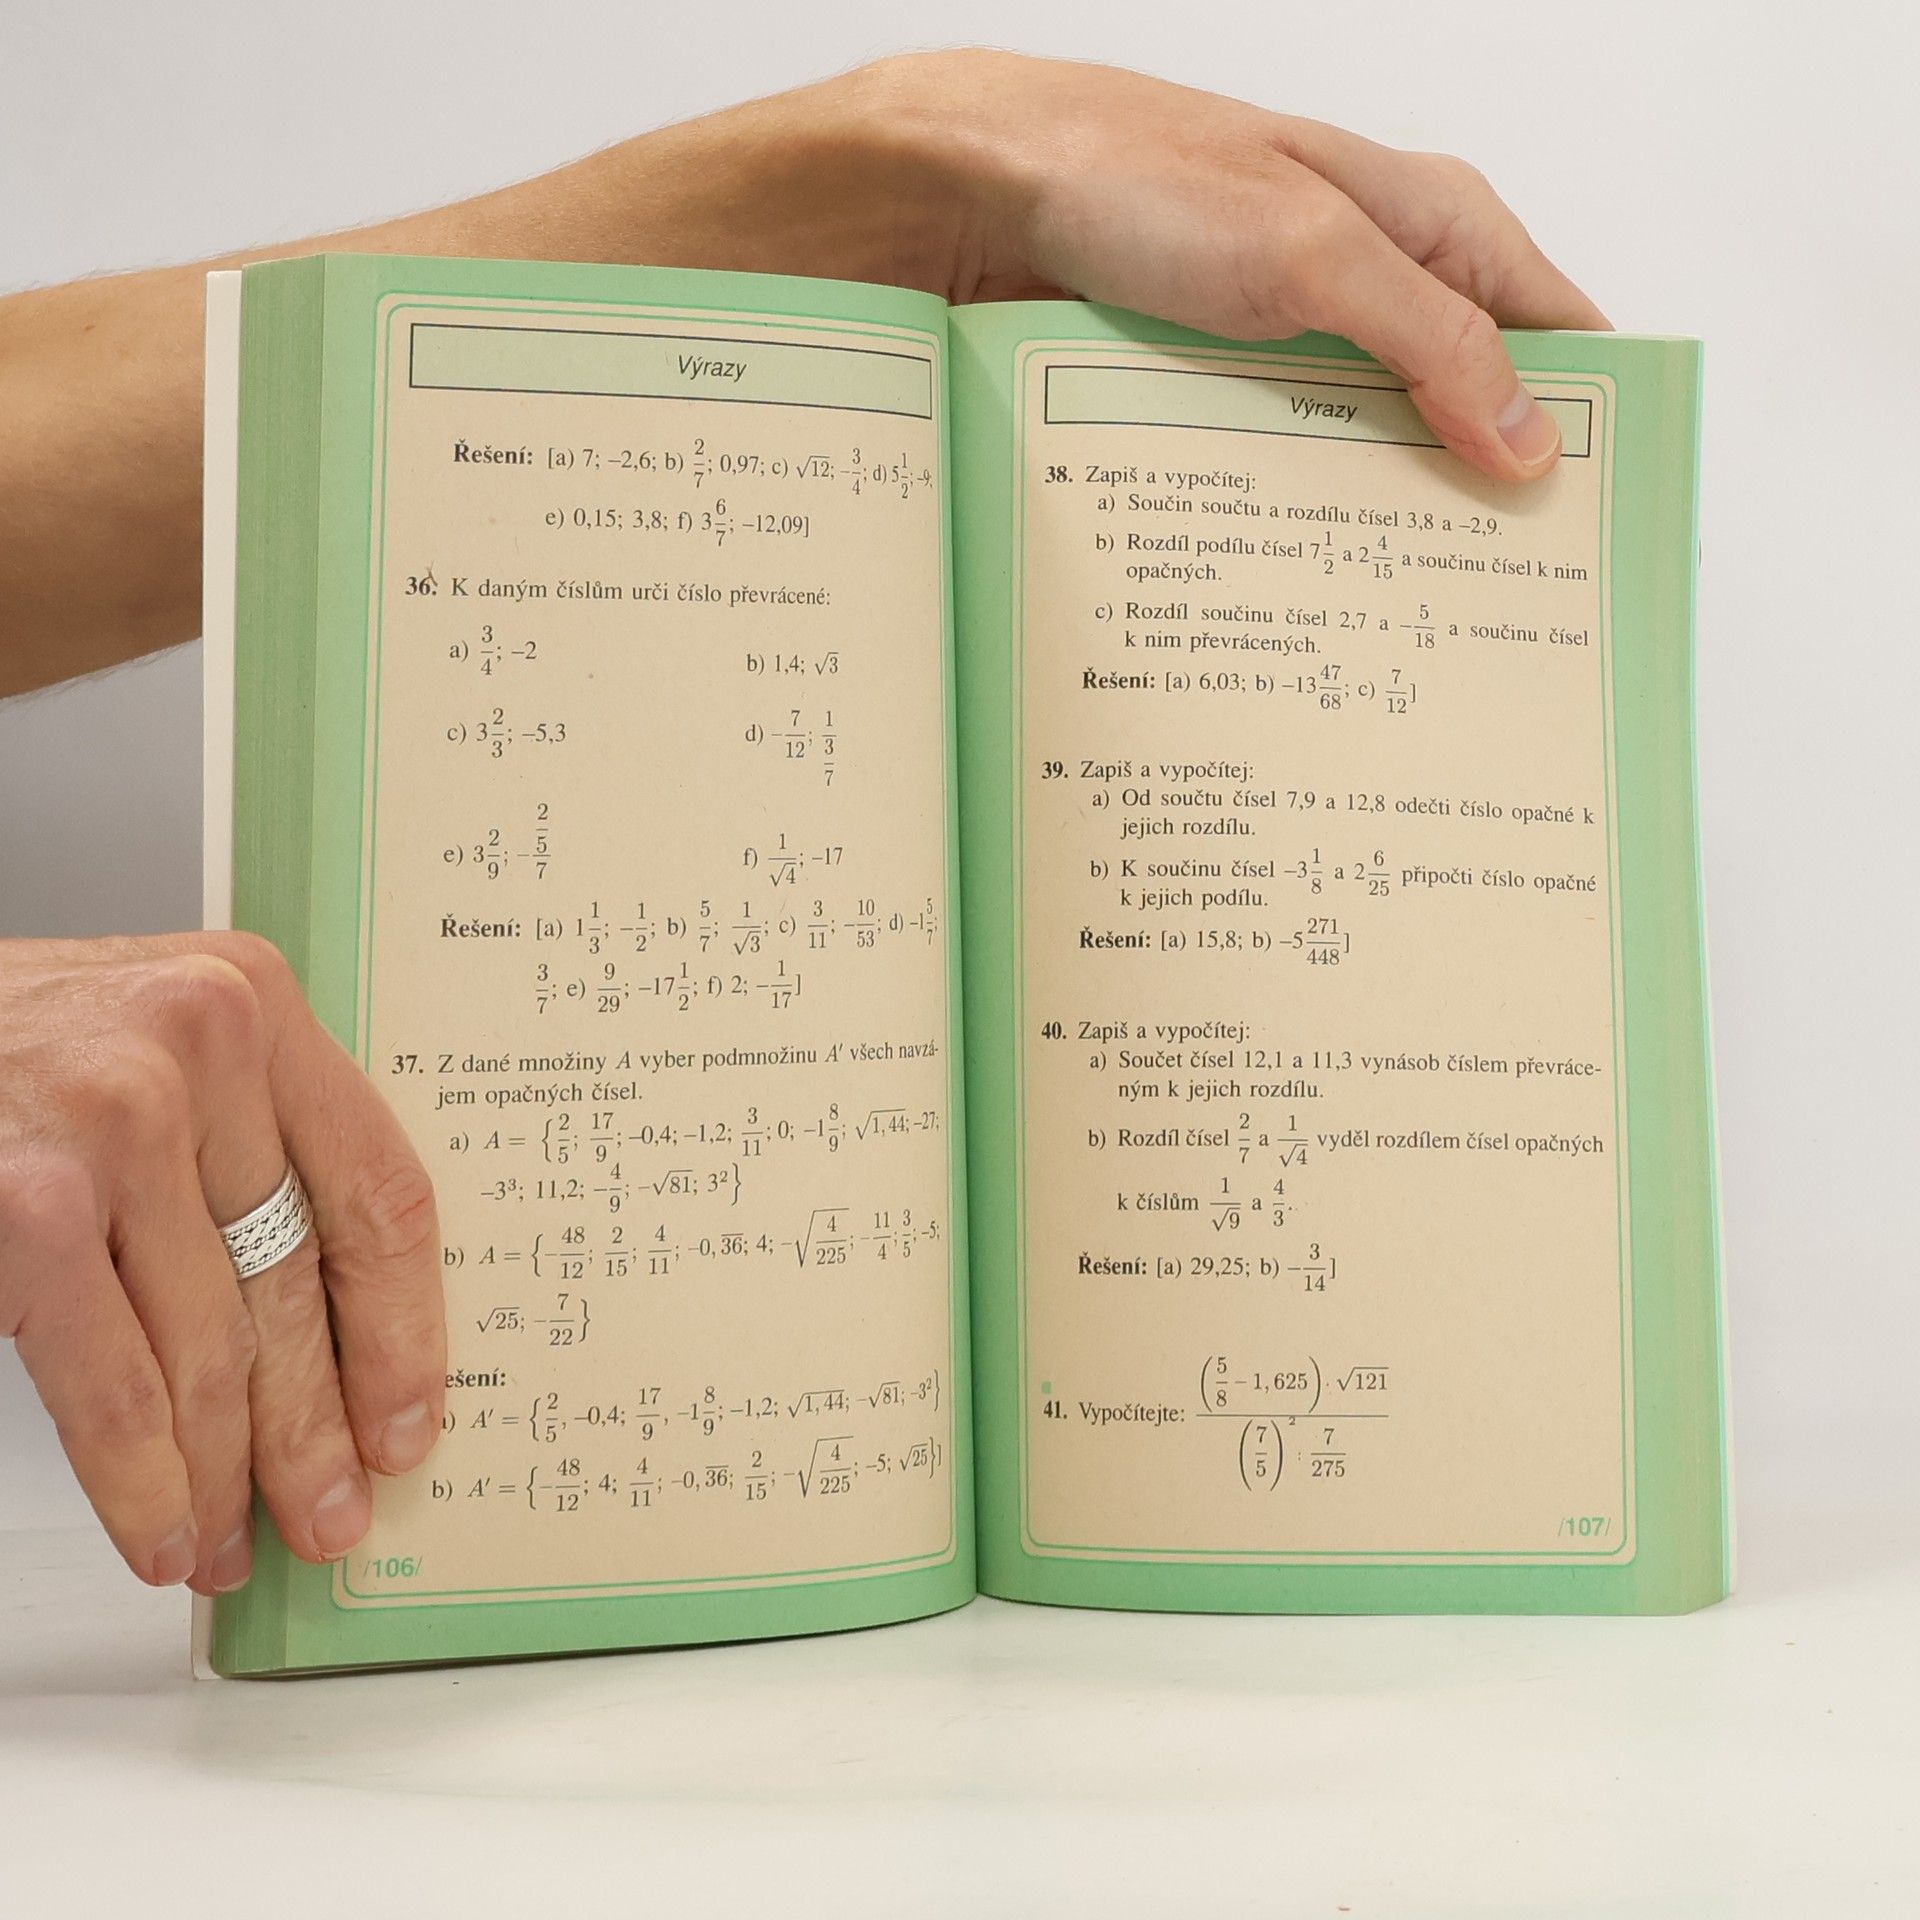 Výrazy
Řešení: [a) 7; –2,6; b) 2/7; 0,97; c) √12; –3/4; d) 5 1/2; –9;
e) 0,15; 3,8; f) 3 6/7; –12,09]
36. K daným číslům urči číslo převrácené:
a) 3/4; –2 b) 1,4; √3
c) 3 2/3; –5,3 d) –7/12; 1/(3/7)
e) 3 2/9; –(2/5)/7 f) 1/√4; –17
Řešení: [a) 1 1/3; –1/2; b) 5/7; 1/√3; c) 3/11; –10/53; d) –1 5/7;
3/7; e) 9/29; –17 1/2; f) 2; –1/17]
37. Z dané množiny A vyber podmnožinu A′ všech navzá-
jem opačných čísel.
a) A = {2/5; 17/9; –0,4; –1,2; 3/11; 0; –1 8/9; √1,44; –27;
–3³; 11,2; –4/9; –√81; 3²}
b) A = {–48/12; 2/15; 4/11; –0,3̅6̅; 4; –√(4/225); –11/4; 3/5; –5;
√25; –7/22}
ešení:
) A′ = {2/5, –0,4; 17/9, –1 8/9; –1,2; √1,44; –√81; –3²}
b) A′ = {–48/12; 4; 4/11; –0,3̅6̅; 2/15; –√(4/225); –5; √25}]
/106/
Výrazy
38. Zapiš a vypočítej:
a) Součin součtu a rozdílu čísel 3,8 a –2,9.
b) Rozdíl podílu čísel 7 1/2 a 2 4/15 a součinu čísel k nim
opačných.
c) Rozdíl součinu čísel 2,7 a –5/18 a součinu čísel
k nim převrácených.
Řešení: [a) 6,03; b) –13 47/68; c) 7/12]
39. Zapiš a vypočítej:
a) Od součtu čísel 7,9 a 12,8 odečti číslo opačné k
jejich rozdílu.
b) K součinu čísel –3 1/8 a 2 6/25 připočti číslo opačné
k jejich podílu.
Řešení: [a) 15,8; b) –5 271/448]
40. Zapiš a vypočítej:
a) Součet čísel 12,1 a 11,3 vynásob číslem převráce-
ným k jejich rozdílu.
b) Rozdíl čísel 2/7 a 1/√4 vyděl rozdílem čísel opačných
k číslům 1/√9 a 4/3.
Řešení: [a) 29,25; b) –3/14]
41. Vypočítejte: ((5/8 – 1,625) · √121) / ((7/5)² : 7/275)
/107/